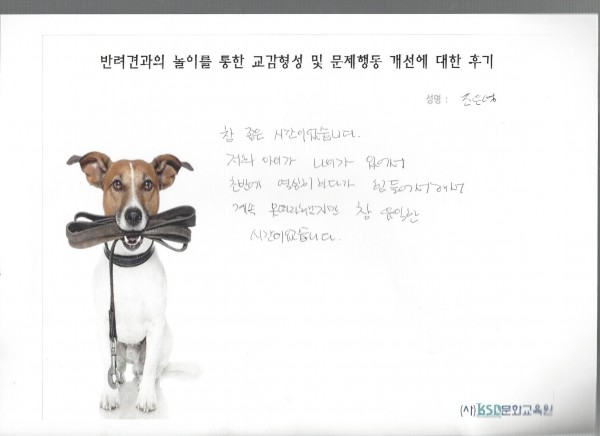 반려견과의 놀이를 통한 교감형성 및 문제행동 개선에 대한 후기
성명 : 조은영
참 좋은 시간이었습니다.
저의 아이가 나이가 있어서
초반에 열심히 하다가 힘들어서
계속 못따라했지만 참 유익한
시간이었습니다.
(사)KSD문화교육원